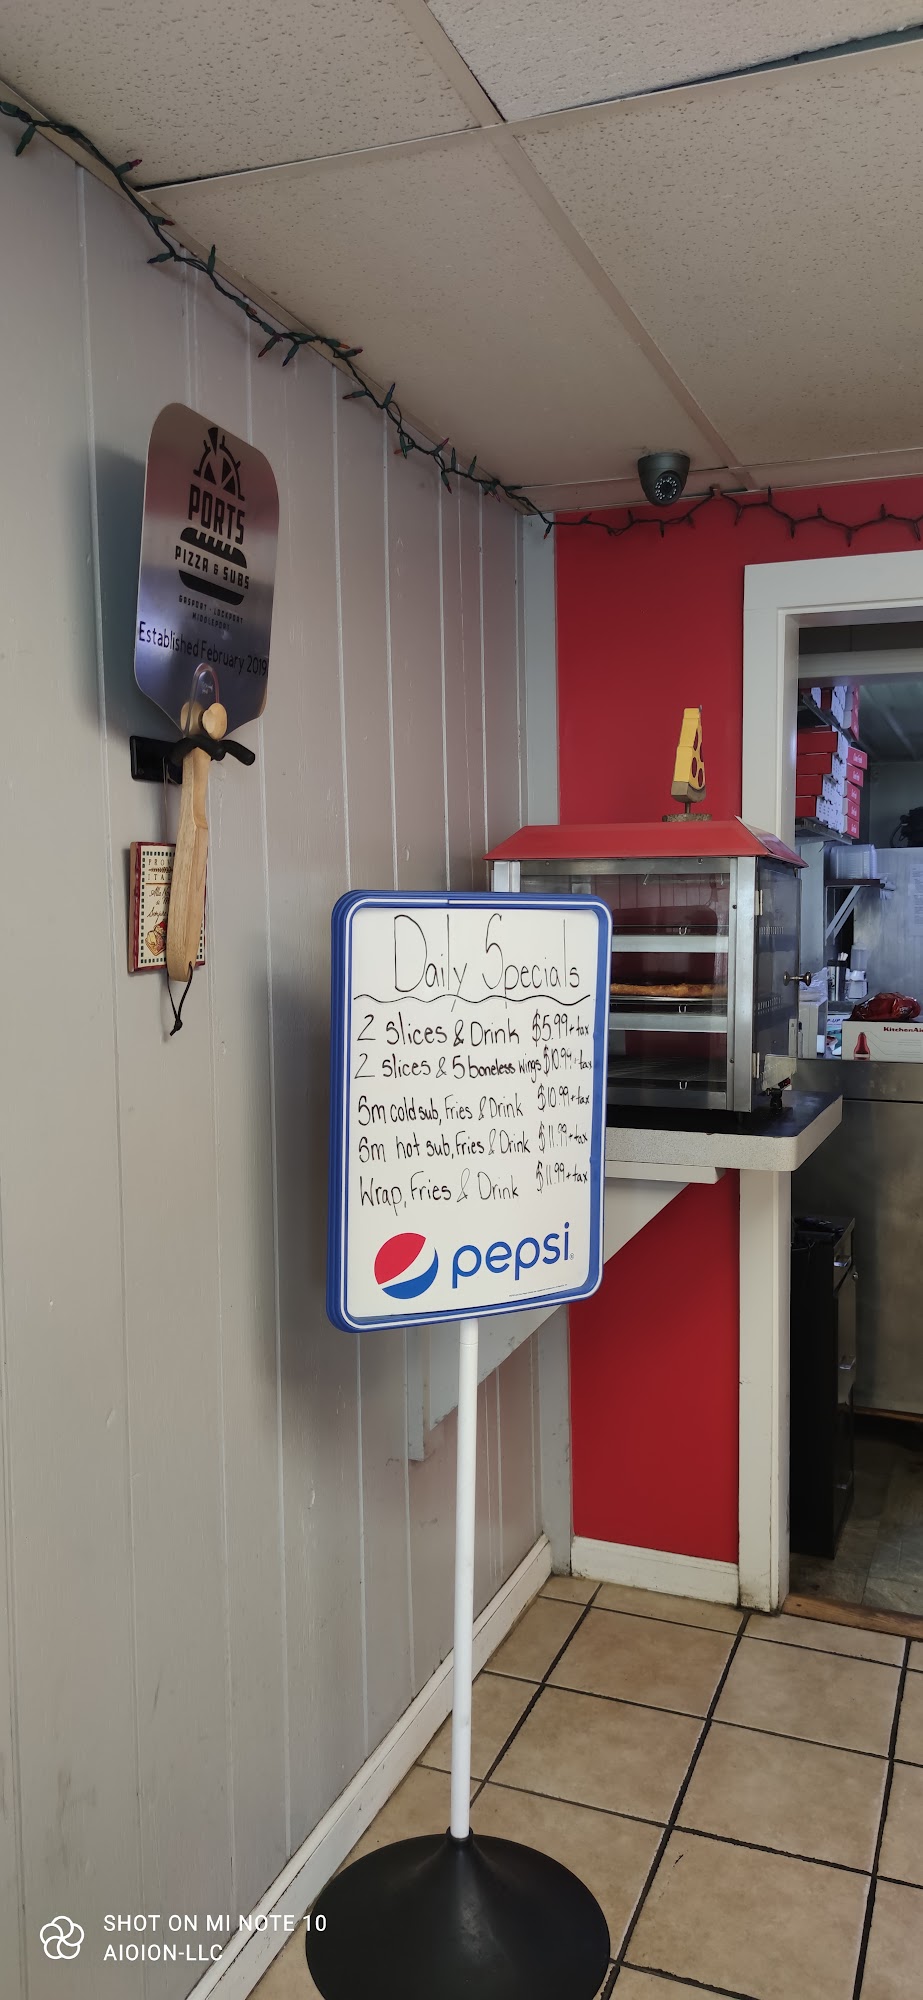 PORTS
PIZZA & SUBS
GASPORT - LOCKPORT
MIDDLEPORT
Established February 2019
Daily Specials
2 slices & Drink $5.99+tax
2 slices & 5 boneless wings $10.99+tax
Sm cold sub, Fries & Drink $10.99+tax
Sm hot sub, Fries & Drink $11.99+tax
Wrap, Fries & Drink $11.99+tax
pepsi
KitchenAid
SHOT ON MI NOTE 10
AIOION-LLC